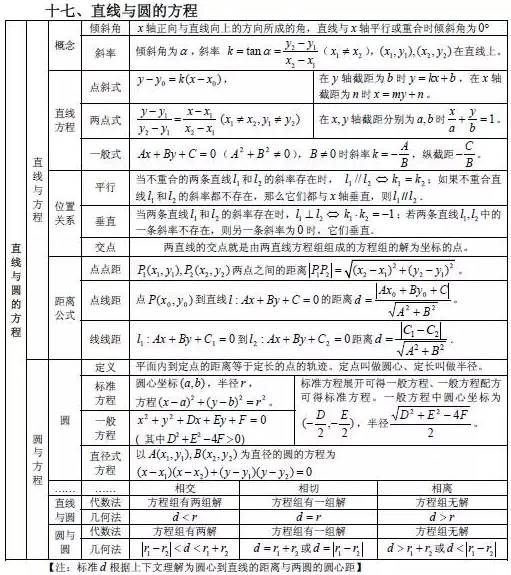 十七、直线与圆的方程
直线与圆的方程
直线与方程
概念
倾斜角
x轴正向与直线向上的方向所成的角，直线与x轴平行或重合时倾斜角为0°
斜率
倾斜角为α，斜率 k=tanα=(y₂-y₁)/(x₂-x₁)（x₁≠x₂），(x₁,y₁),(x₂,y₂)在直线上。
直线方程
点斜式
y-y₀=k(x-x₀)，
在y轴截距为b时y=kx+b，在x轴
截距为n时x=my+n。
两点式
(y-y₁)/(y₂-y₁)=(x-x₁)/(x₂-x₁) (x₁≠x₂,y₁≠y₂)
在x,y轴截距分别为a,b时x/a+y/b=1。
一般式
Ax+By+C=0（A²+B²≠0），B≠0时斜率k=-A/B，纵截距-C/B。
位置关系
平行
当不重合的两条直线l₁和l₂的斜率存在时，l₁//l₂⇔k₁=k₂；如果不重合直
线l₁和l₂的斜率都不存在，那么它们都与x轴垂直，则l₁//l₂．
垂直
当两条直线l₁和l₂的斜率存在时，l₁⊥l₂⇔k₁·k₂=-1；若两条直线l₁,l₂中的
一条斜率不存在，则另一条斜率为0时，它们垂直．
交点
两直线的交点就是由两直线方程组组成的方程组的解为坐标的点。
距离公式
点点距
P₁(x₁,y₁),P₂(x₂,y₂)两点之间的距离|P₁P₂|=√((x₂-x₁)²+(y₂-y₁)²)。
点线距
点P(x₀,y₀)到直线l:Ax+By+C=0的距离d=|Ax₀+By₀+C|/√(A²+B²)。
线线距
l₁:Ax+By+C₁=0到l₂:Ax+By+C₂=0距离d=|C₁-C₂|/√(A²+B²)．
圆与方程
圆
定义
平面内到定点的距离等于定长的点的轨迹。定点叫做圆心、定长叫做半径。
标准方程
圆心坐标(a,b)，半径r，
方程(x-a)²+(y-b)²=r²。
标准方程展开可得一般方程、一般方程配方
可得标准方程。一般方程中圆心坐标为
(-D/2,-E/2)，半径√(D²+E²-4F)/2。
一般方程
x²+y²+Dx+Ey+F=0
（其中D²+E²-4F>0)
直径式方程
以A(x₁,y₁),B(x₂,y₂)为直径的圆的方程为
(x-x₁)(x-x₂)+(y-y₁)(y-y₂)=0
…… …… 相交 相切 相离
直线与圆
代数法 方程组有两组解 方程组有一组解 方程组无解
几何法 d<r d=r d>r
圆与圆
代数法 方程组有两解 方程组有一组解 方程组无解
几何法 |r₁-r₂|<d<r₁+r₂ d=r₁+r₂或d=|r₁-r₂| d>r₁+r₂或d<|r₁-r₂|
【注：标准d根据上下文理解为圆心到直线的距离与两圆的圆心距】